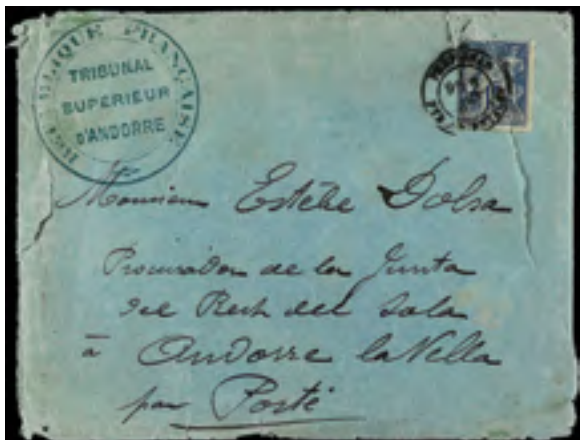 RÉPUBLIQUE FRANÇAISE
TRIBUNAL
SUPÉRIEUR
D'ANDORRE
Monsieur Estèbe Dolsa
Procurador de la Junta
del Rech del Sola
à Andorre la Vella
par Porté